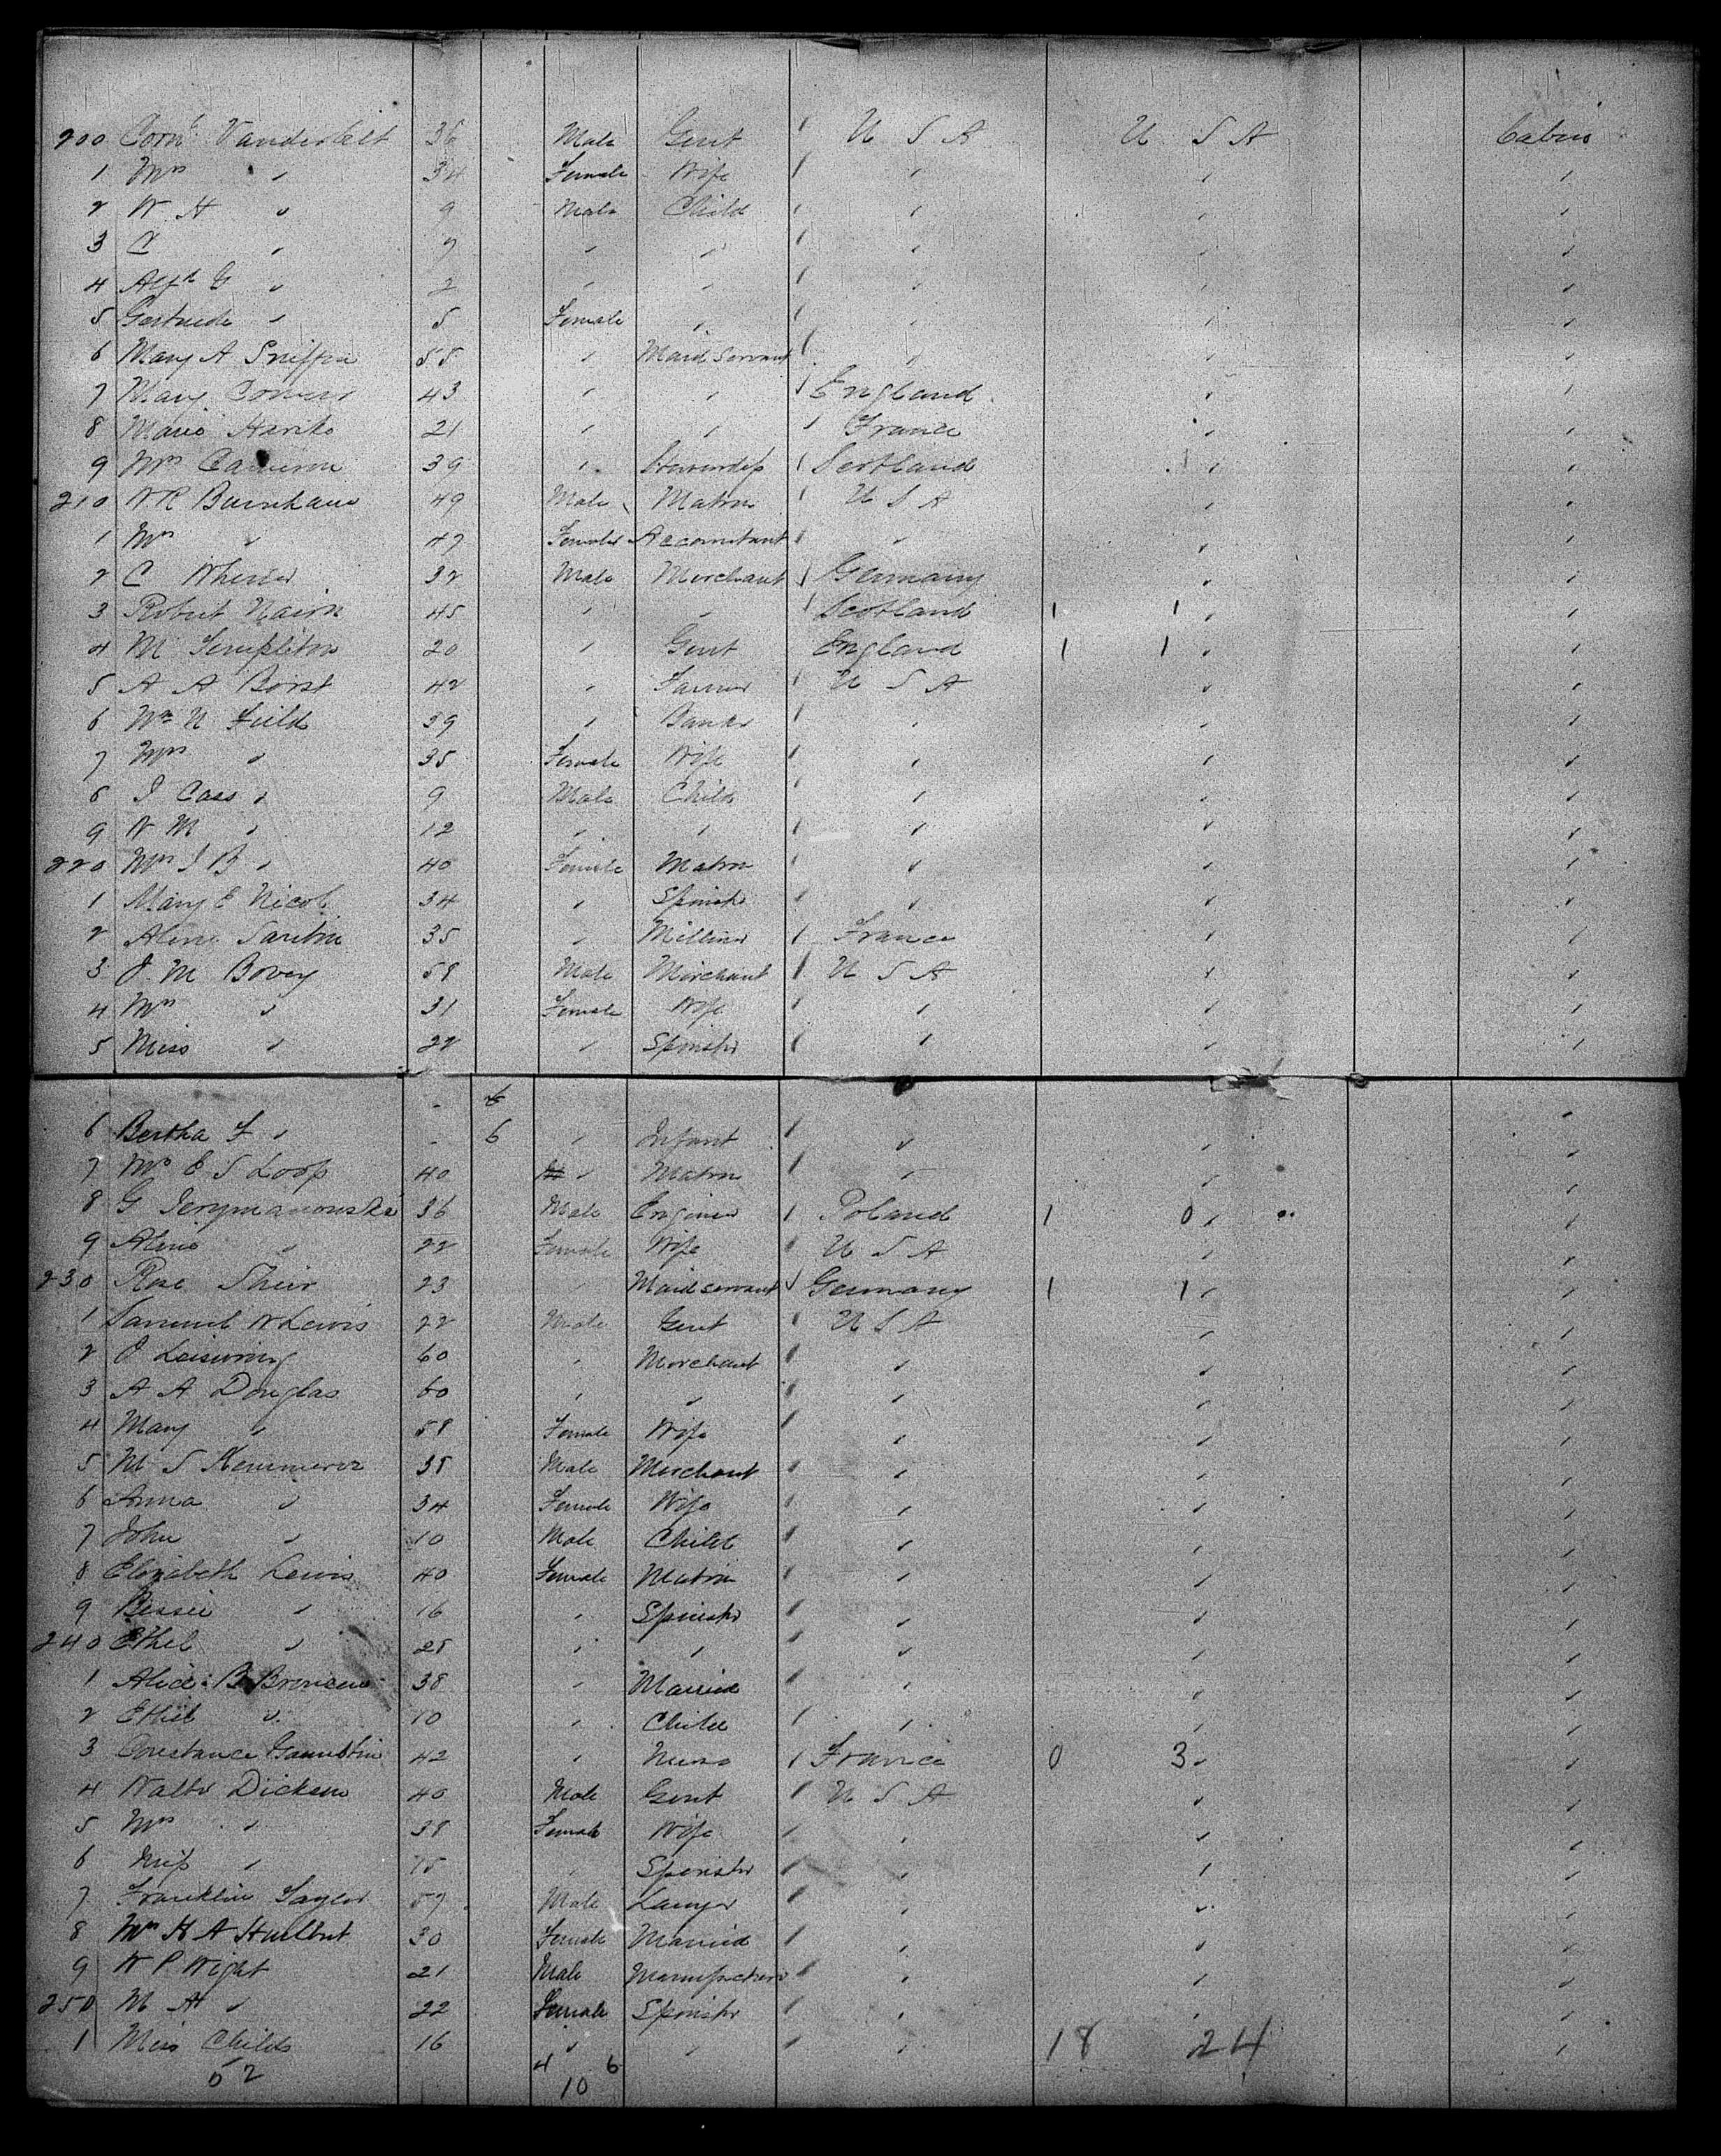 200 Corn' Vanderbilt 36 Male Gent U S A U S A Cabin
1 Mrs " 34 Female Wife " " "
2 W H " 9 Male Child " " "
3 C " 7 " " " " "
4 Alfd G " 2 " " " " "
5 Gertrude " 5 Female " " " "
6 Mary A 55 " Maid Servant " " "
7 Mary 43 " " England " "
8 Marie 21 " " France " "
9 Mrs Cameron 39 " Scotland " "
210 W R Burnham 49 Male Matron U S A " "
1 Mrs " 47 Female Accountant " " "
2 C 32 Male Merchant Germany " "
3 Robert Nairn 45 " " Scotland 1 1 " "
4 M Templeton 20 " Gent England 1 1 " "
5 A A Borst 42 " Farmer U S A " "
6 Wm N Field 39 " Banker " " "
7 Mrs " 35 Female Wife " " "
8 J Cass " 9 Male Child " " "
9 W M " 12 " " " " "
220 Mrs J B " 40 Female Matron " " "
1 Mary E Nicol 34 " Spinstr " " "
2 Aline 35 " Milliner France " "
3 J M Bovey 58 Male Merchant U S A " "
4 Mrs " 31 Female Wife " " "
5 Miss " 22 " Spinstr " " "
6 Bertha F " - 6 " Infant " " "
7 Mrs E S Loop 40 " Matron " " "
8 G 36 Male Engineer Poland 1 0 " "
9 Aline " 22 Female Wife U S A " "
230 Rose 23 " Maid servant Germany 1 1 " "
1 Samuel W Lewis 22 Male Gent U S A " "
2 J Leisenring 60 " Merchant " " "
3 A A Douglas 60 " " " " "
4 Mary " 58 Female Wife " " "
5 M S Kemmerer 38 Male Merchant " " "
6 Anna " 34 Female Wife " " "
7 John " 10 Male Child " " "
8 Elizabeth Lewis 40 Female Matron " " "
9 Bessie " 16 " Spinstr " " "
240 Ethel " 28 " " " " "
1 Alice B 38 " Married " " "
2 Ethel " 10 " Child " " "
3 Constance 42 " Nurse France 0 3 " "
4 Waltr Dickson 40 Male Gent U S A " "
5 Mrs " 38 Female Wife " " "
6 Miss " 15 " Spinstr " " "
7 Franklin Taylor 57 Male Lawyer " " "
8 Mrs H A Hurlbut 30 Female Married " " "
9 W P Wight 21 Male Manufacturer " " "
250 M A " 22 Female Spinstr " " "
1 Miss Childs 16 " " " 18 24 "
52 4 6
10